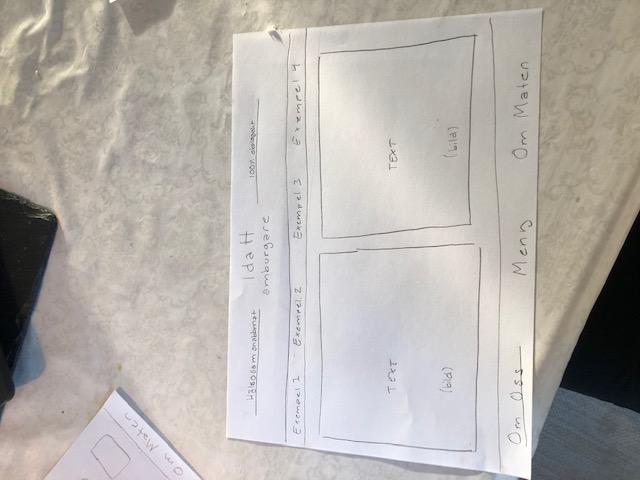 Om Maten
Hälsosam snabbmat
Ida H
amburgare
100% ekologiskt
Exempel 1 Exempel 2 Exempel 3 Exempel 4
TEXT
(bild)
TEXT
(bild)
Om Oss Meny Om Maten